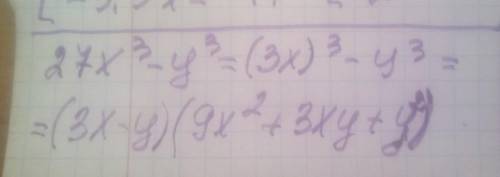 27x³-y³=(3x)³-y³=
=(3x-y)(9x²+3xy+y²)